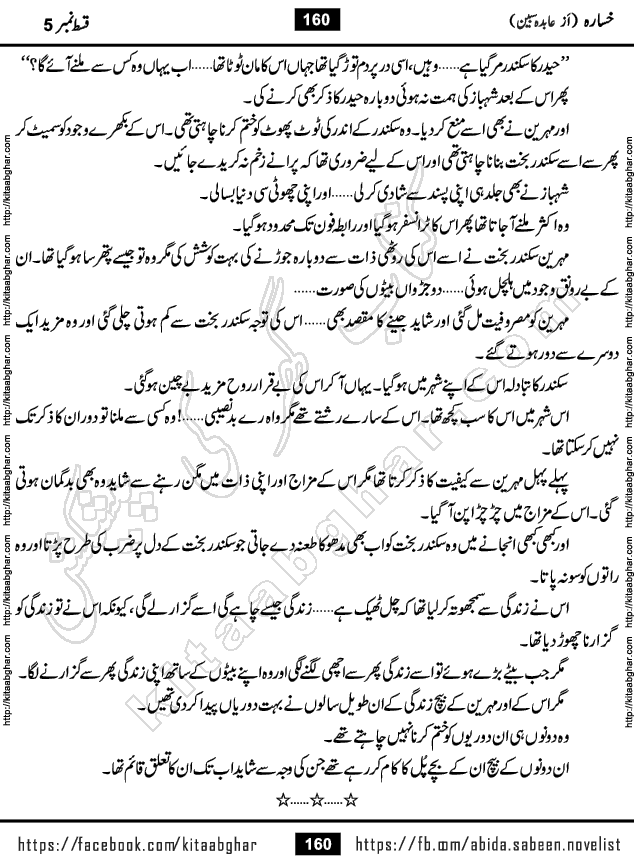 خسارہ (از عابدہ سبین)
160
قسط نمبر 5
”حیدر کا سکندر مر گیا ہے......وہیں، اسی در پر دم توڑ گیا تھا جہاں اس کا مان ٹوٹا تھا......اب یہاں وہ کس سے ملنے آئے گا؟“
پھر اس کے بعد شہباز کی ہمت نہ ہوئی دوبارہ حیدر کا ذکر بھی کرنے کی۔
اور مہرین نے بھی اسے منع کر دیا۔ وہ سکندر کے اندر کی ٹوٹ پھوٹ کو ختم کرنا چاہتی تھی۔ اس کے بکھرے وجود کو سمیٹ کر
پھر سے اسے سکندر بخت بنانا چاہتی تھی اور اس کے لیے ضروری تھا کہ پرانے زخم نہ کریدے جائیں۔
شہباز نے بھی جلد ہی اپنی پسند سے شادی کر لی......اور اپنی چھوٹی سی دنیا بسا لی۔
وہ اکثر ملنے آ جاتا تھا پھر اس کا ٹرانسفر ہو گیا اور رابطہ فون تک محدود ہو گیا۔
مہرین سکندر بخت نے اسے اس کی روٹھی ذات سے دوبارہ جوڑنے کی بہت کوشش کی مگر وہ تو جیسے پتھر سا ہو گیا تھا۔ ان
کے بے رونق وجود میں ہلچل ہوئی......دو جڑواں بیٹوں کی صورت......
مہرین کو مصروفیت مل گئی اور شاید جینے کا مقصد بھی......اس کی توجہ سکندر بخت سے کم ہوتی چلی گئی اور وہ مزید ایک
دوسرے سے دور ہوتے گئے۔
سکندر کا تبادلہ اس کے اپنے شہر میں ہو گیا۔ یہاں آ کر اس کی بے قرار روح مزید بے چین ہو گئی۔
اس شہر میں اس کا سب کچھ تھا۔ اس کے سارے رشتے تھے مگر واہ رے بدنصیبی......! وہ کسی سے ملنا تو دور ان کا ذکر تک
نہیں کر سکتا تھا۔
پہلے پہل مہرین سے کیفیت کا ذکر کرتا تھا مگر اس کے مزاج اور اپنی ذات میں مگن رہنے سے شاید وہ بھی بدگمان ہوتی
گئی۔ اس کے مزاج میں چڑچڑا پن آ گیا۔
اور کبھی کبھی انجانے میں وہ سکندر بخت کو اب بھی مدھو کا طعنہ دے جاتی جو سکندر بخت کے دل پر ضرب کی طرح پڑتا اور وہ
راتوں کو سو نہ پاتا۔
اس نے زندگی سے سمجھوتہ کر لیا تھا کہ چل ٹھیک ہے......زندگی جیسے چاہے گی اسے گزار لے گی، کیونکہ اس نے تو زندگی کو
گزارنا چھوڑ دیا تھا۔
مگر جب بیٹے بڑے ہوئے تو اسے زندگی پھر سے اچھی لگنے لگی اور وہ اپنے بیٹوں کے ساتھ اپنی زندگی پھر سے گزارنے لگا۔
مگر اس کے اور مہرین کے بیچ زندگی کے ان طویل سالوں نے بہت دوریاں پیدا کر دی تھیں۔
وہ دونوں ہی ان دوریوں کو ختم کرنا نہیں چاہتے تھے۔
ان دونوں کے بیچ ان کے بچے پُل کا کام کر رہے تھے جن کی وجہ سے شاید اب تک ان کا تعلق قائم تھا۔
☆......☆......☆
https://facebook.com/kitaabghar
160
https://fb.com/abida.sabeen.novelist
http://kitaabghar.com http://kitaabghar.com http://kitaabghar.com http://kitaabghar.com http://kitaabghar.com http://kitaabghar.com
http://kitaabghar.com http://kitaabghar.com http://kitaabghar.com http://kitaabghar.com http://kitaabghar.com http://kitaabghar.com
کتاب گھر کی پیشکش
kitaabghar.com